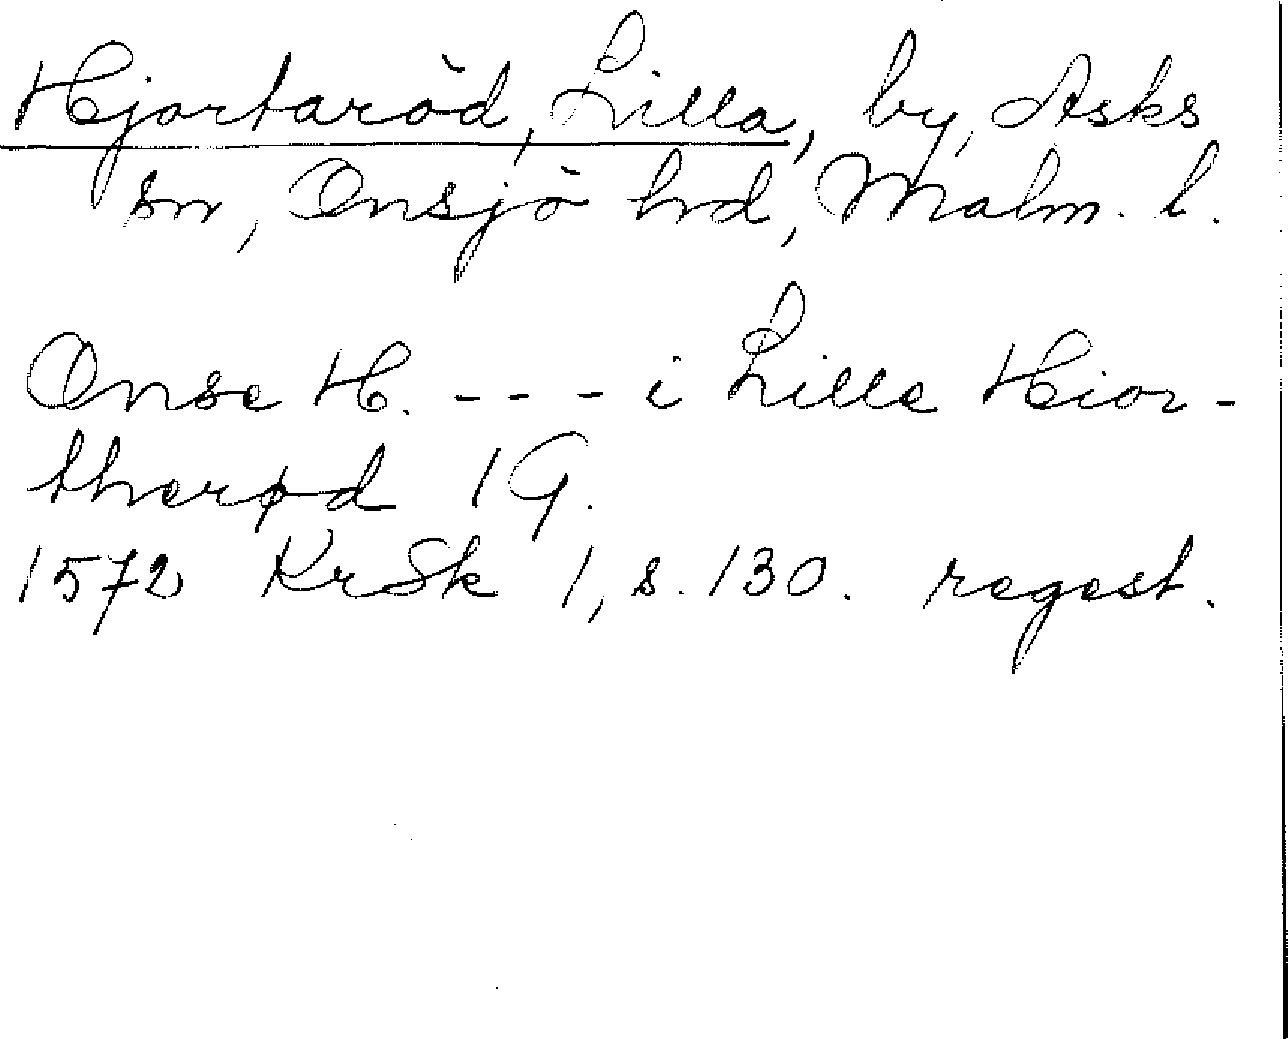 Hjortaröd, Lilla, by, Asks
sn, Onsjö hrd, Malm. l.
Onse H. - - - i Lille Hior-
therød 1 G.
1572 KrSk 1, s. 130. regest.